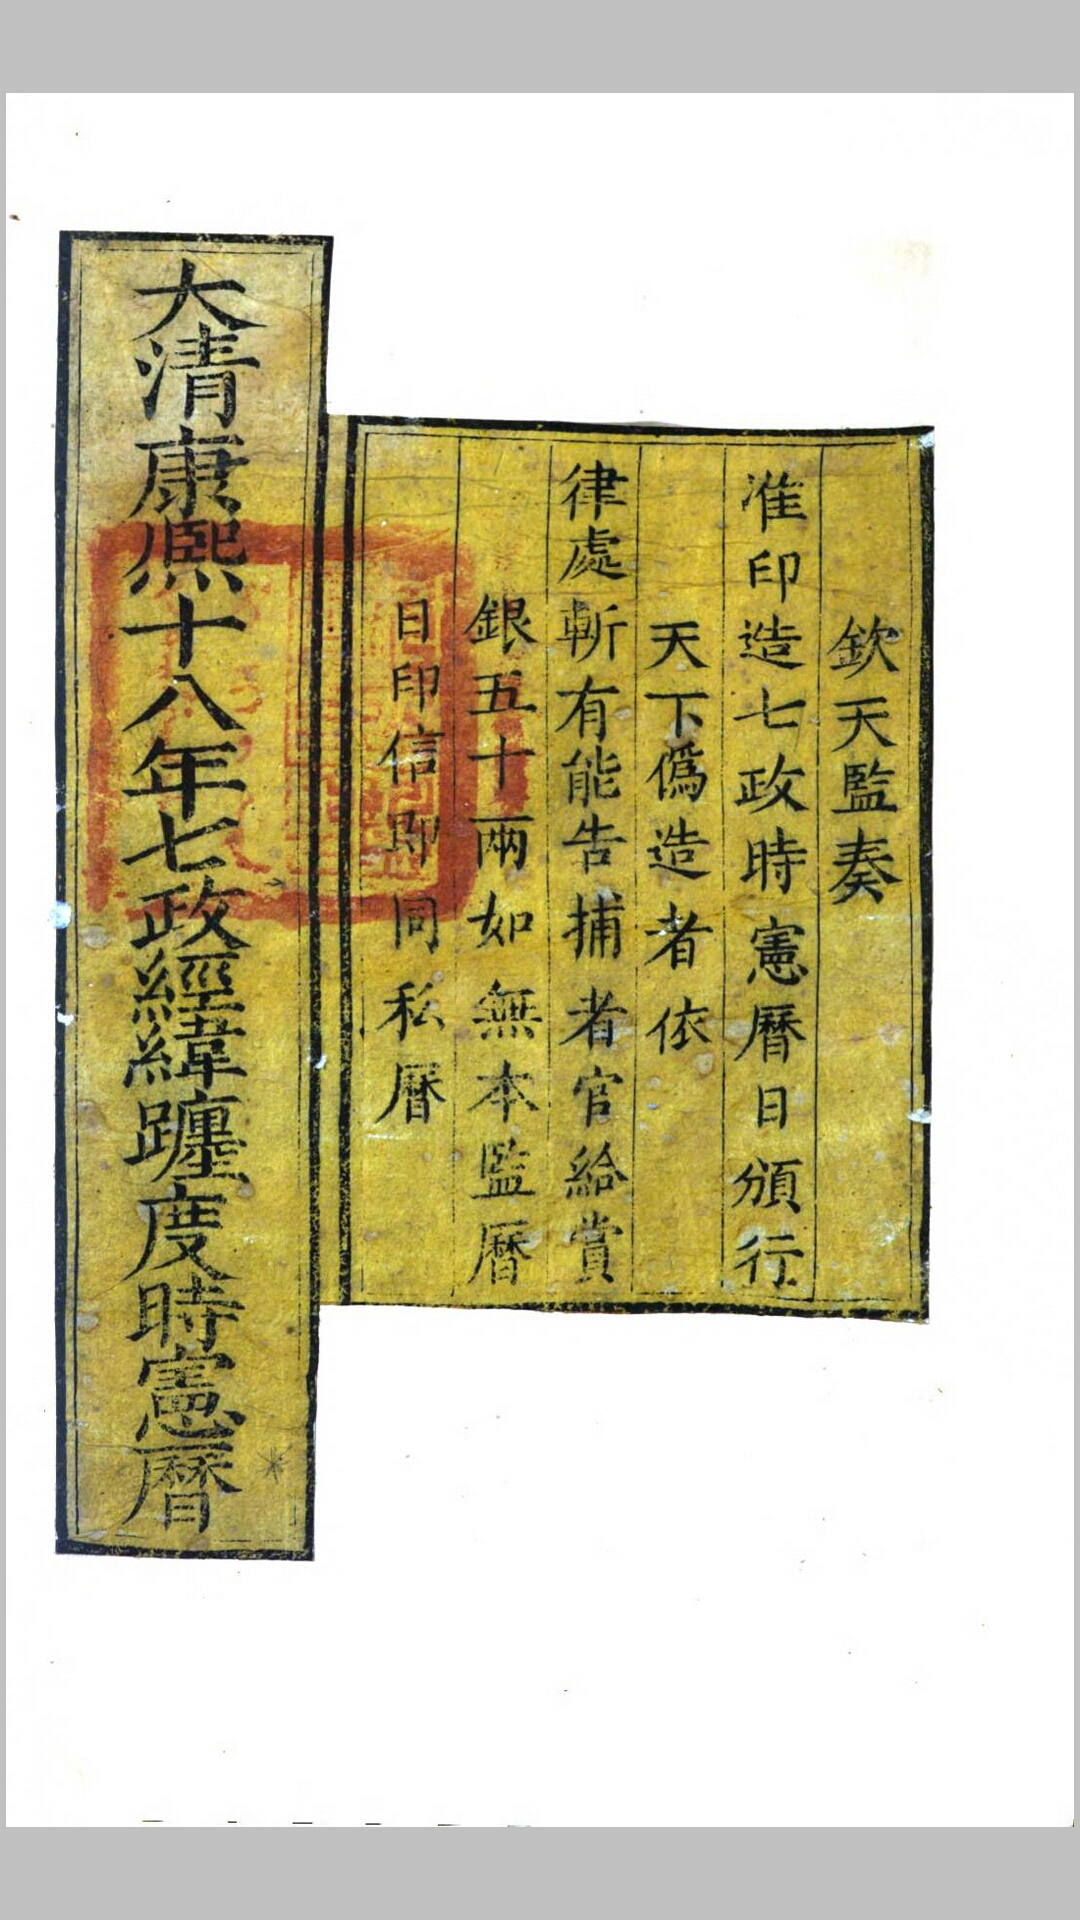 欽天監奏
准印造七政時憲曆日頒行
天下偽造者依
律處斬有能告捕者官給賞
銀五十兩如無本監曆
日印信即同私曆
大清康熙十八年七政經緯躔度時憲曆